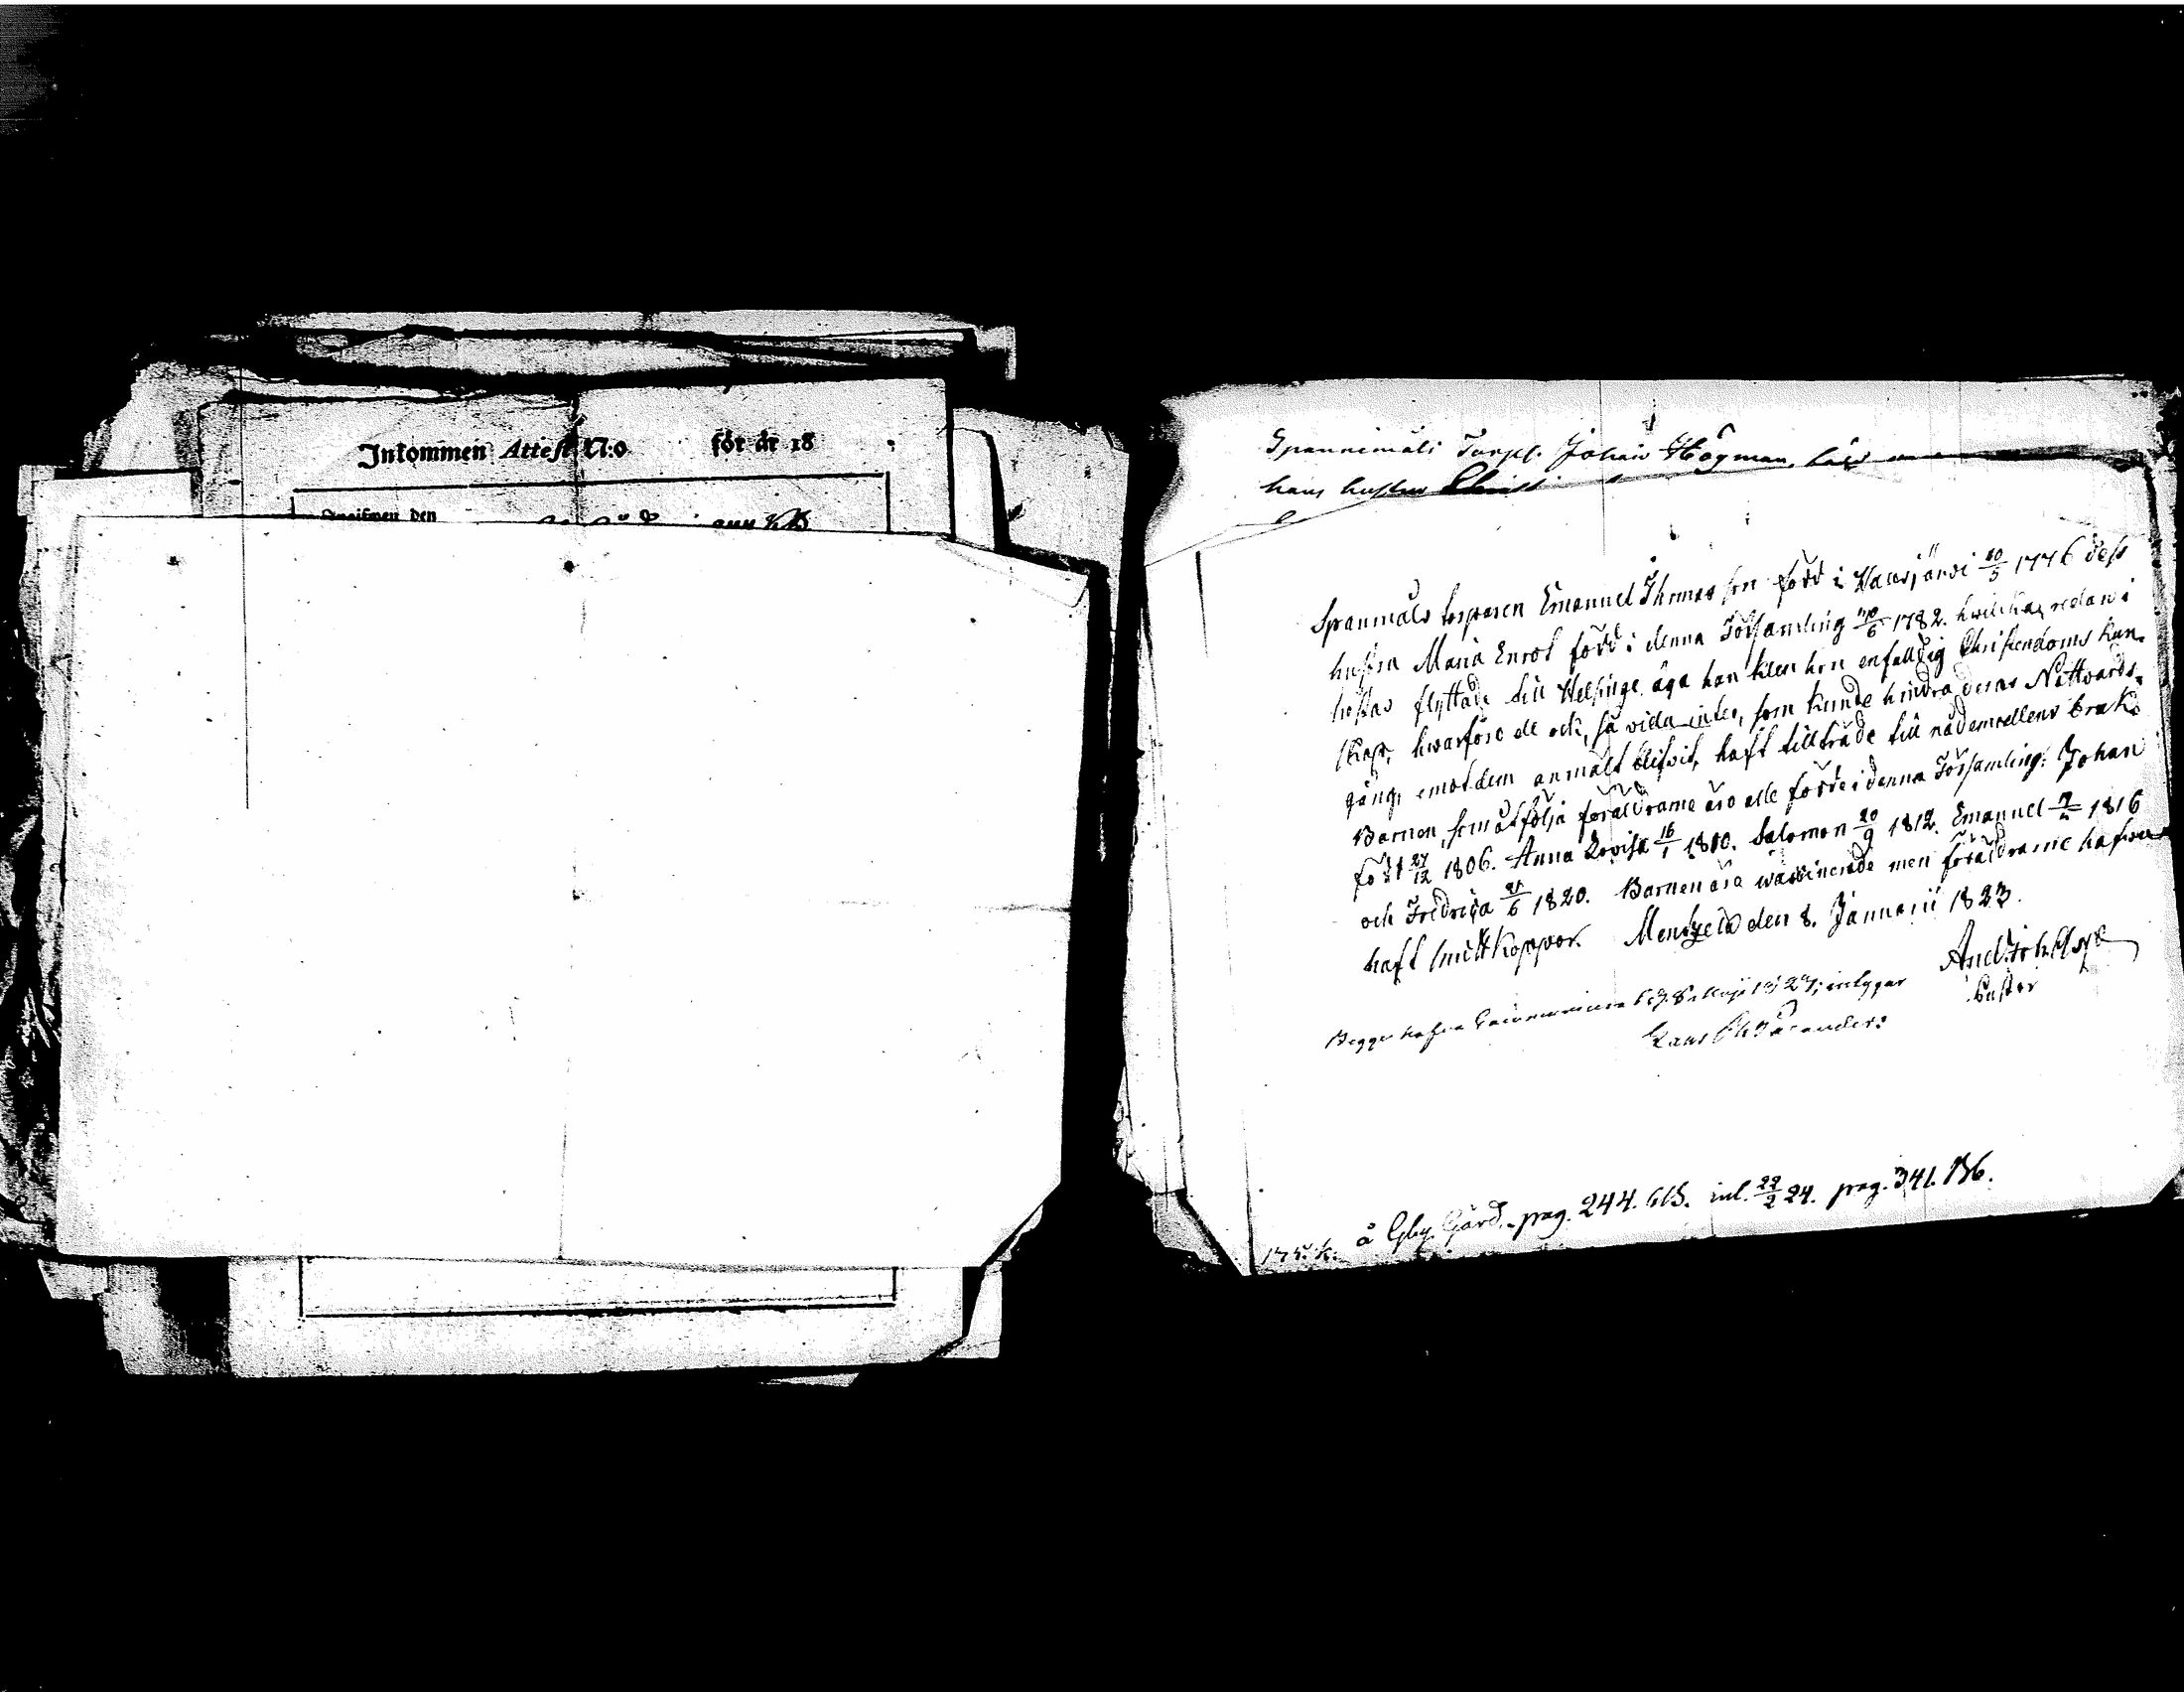 Inkommen Attest N:o för år 18
den
Torp. Johan Högman,
hans hustru
Spanmåls torparen Emanuel Thomasson född i Hausjärvi 10/5 1776 dess
hustru Maria Enrot född i denna Församling 30/6 1782. hwilka redan i
höstas flyttade till Helsinge äga han klen hon enfalldig Christendoms kun-
skap, hwarföre de ock, så vida intet, som kunde hindra deras Nattvards-
gång, emot dem anmält blifvit, haft tillträde till nådemedlens bruk.
Barnen som åtfölja föräldrarne äro alle födde i denna Församling: Johan
född 27/12 1806. Anna Lovisa 16/1 1810. Salomon 20/9 1812. Emanuel 1816
och Fredrica 21/6 1820. Barnen äro waccinerade men föräldrarne hafwa
haft smittkoppor. Mentzelä den 8. Januarii 1823.
Pastor
Begge hafwa
å Gård. pag. 244. inl. 22/2 24. pag. 341.